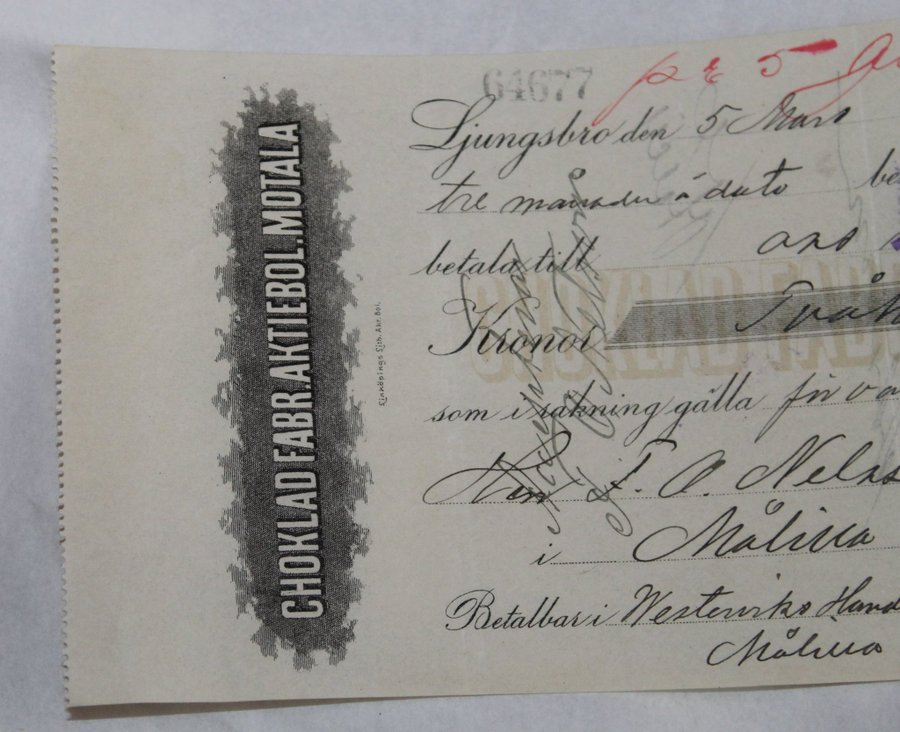 CHOKLAD FABR. AKTIEBOL. MOTALA
Linköpings Lith. Akt. Bol.
64677
pr 5
Ljungsbro den 5 Mars
tre månader à dato be
betala till oss
CHOKLAD FAB
Kronor Tvåh
som i räkning gälla för va
Herr F. O. Nels
i Målilla
Betalbar i Westerviks Hand
Målilla